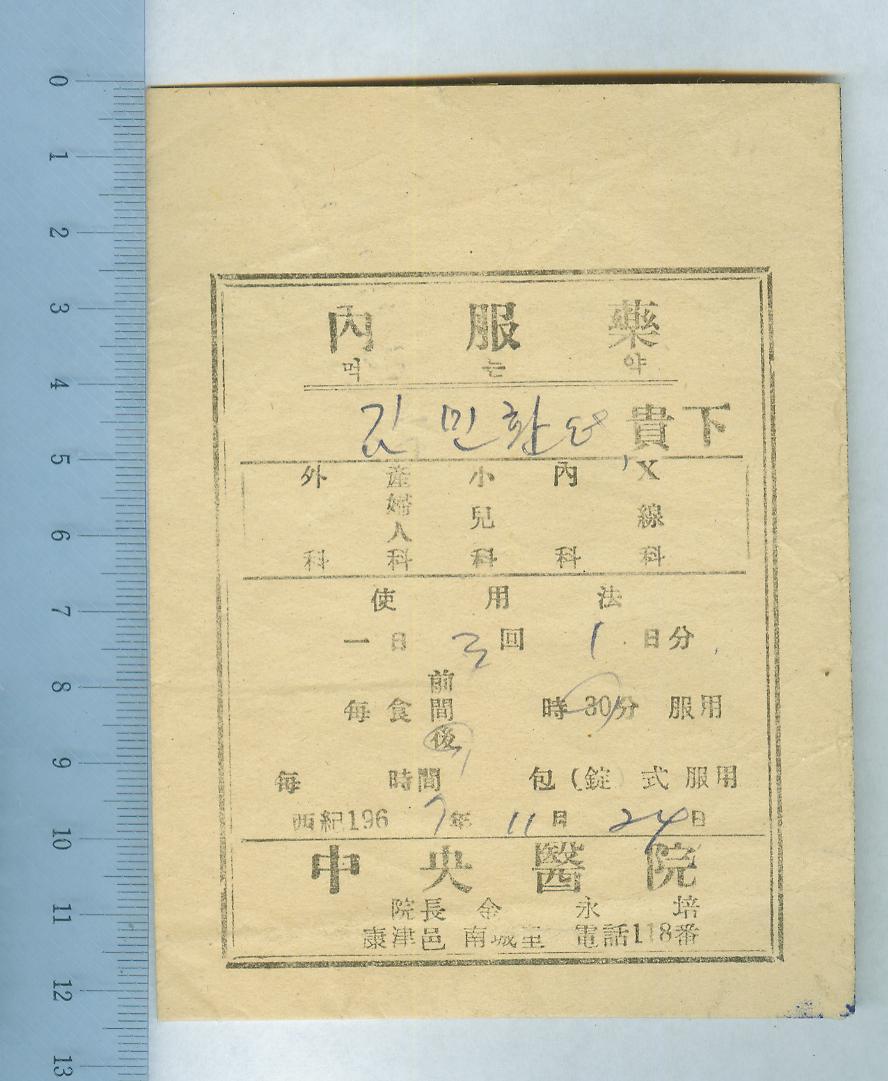 內 服 藥
먹 는 약
김민환 貴下
外科 産婦人科 小兒科 內科 X線科
使 用 法
一日 3回 1日分
每食 前 間 後 時30分 服用
每 時間 包(錠)式服用
西紀1967年 11月 24日
中央醫院
院長 金永培
康津邑 南城里 電話118番
0
1
2
3
4
5
6
7
8
9
10
11
12
13